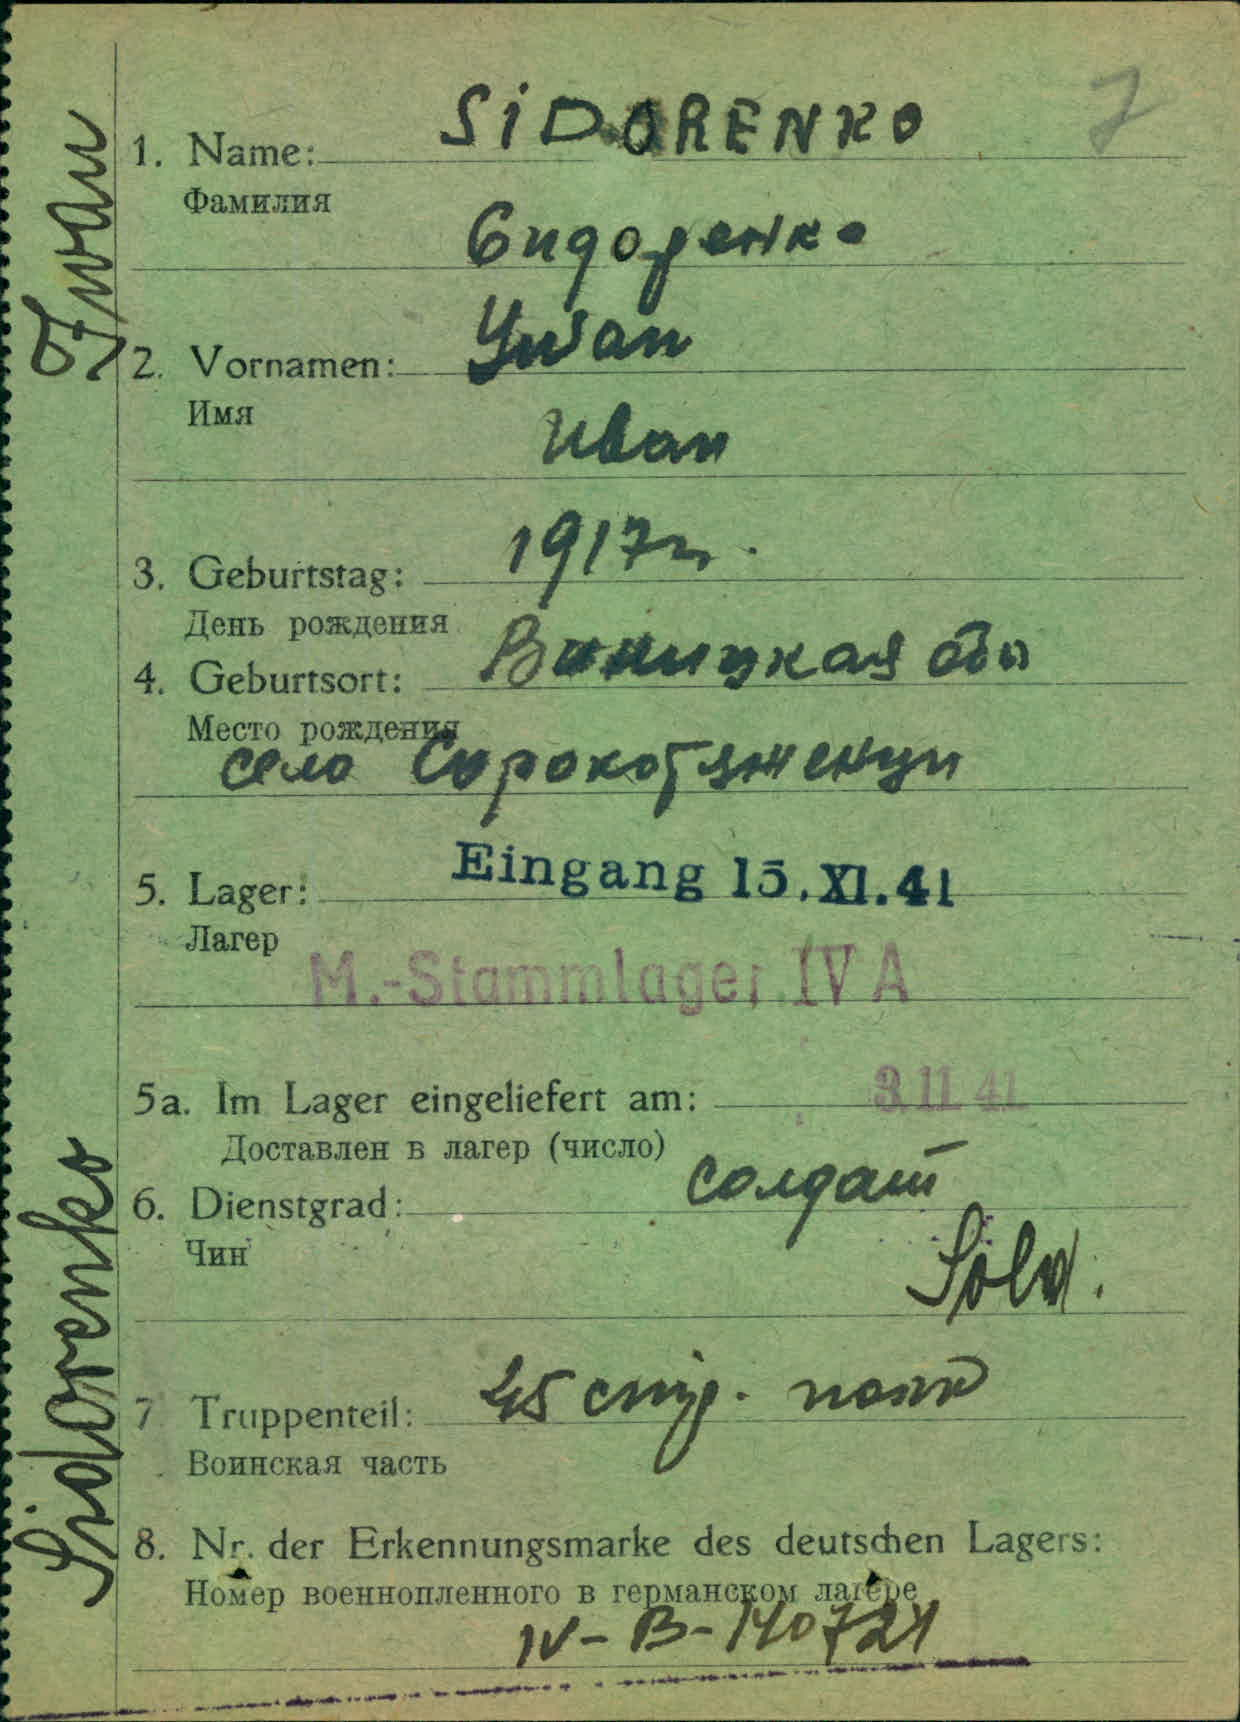 7
SiDORENKO
1. Name:
Фамилия
Сидоренко
Ywan
2. Vornamen:
Имя
Иван
1917г.
3. Geburtstag:
День рождения
Виницкая обл
4. Geburtsort:
Место рождения
село Сорокотяженци
Eingang 15.XI.41
5. Lager:
Лагер
M.-Stammlager IV A
5a. Im Lager eingeliefert am: 3.11.41
Доставлен в лагер (число)
солдат
6. Dienstgrad:
Чин
Sold.
45 стр. полк
7 Truppenteil:
Воинская часть
8. Nr. der Erkennungsmarke des deutschen Lagers:
Номер военнопленного в германском лагере
IV-B-140724
Sidorenko Iwan